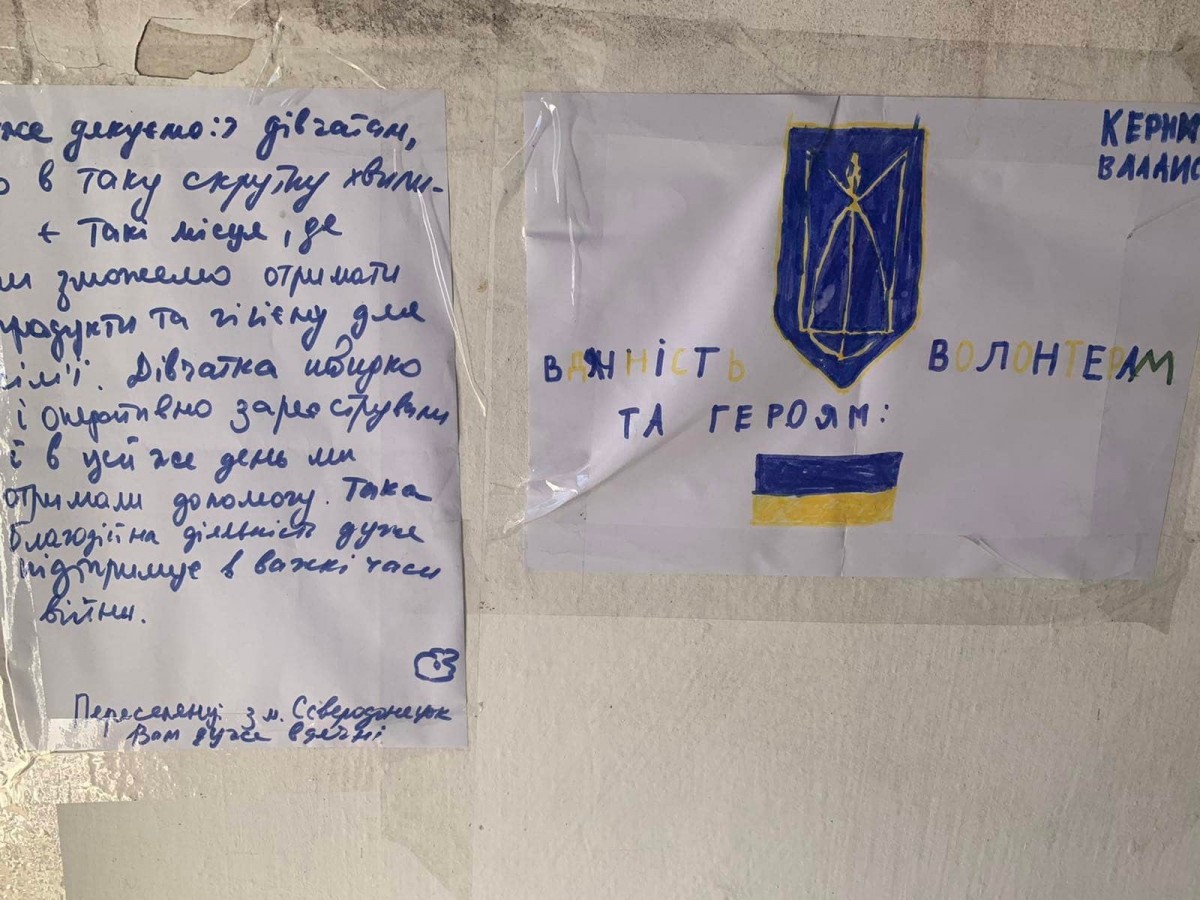 же дякуємо:) дівчатам,
в таку скрутну хвили-
є такі місця, де
ми зможемо отримати
продукти та гігієну для
сім'ї. Дівчатка швидко
і оперативно зареєстрували
і в цей же день ми
отримали допомогу. Така
благодійна діяльність дуже
підтримує в важкі часи
війни.
Переселенці з м. Сєвєродонецьк
Вам дуже вдячні
КЕРНИ
ВЛАДИС
ВДЯЧНІСТЬ ВОЛОНТЕРАМ
ТА ГЕРОЯМ: